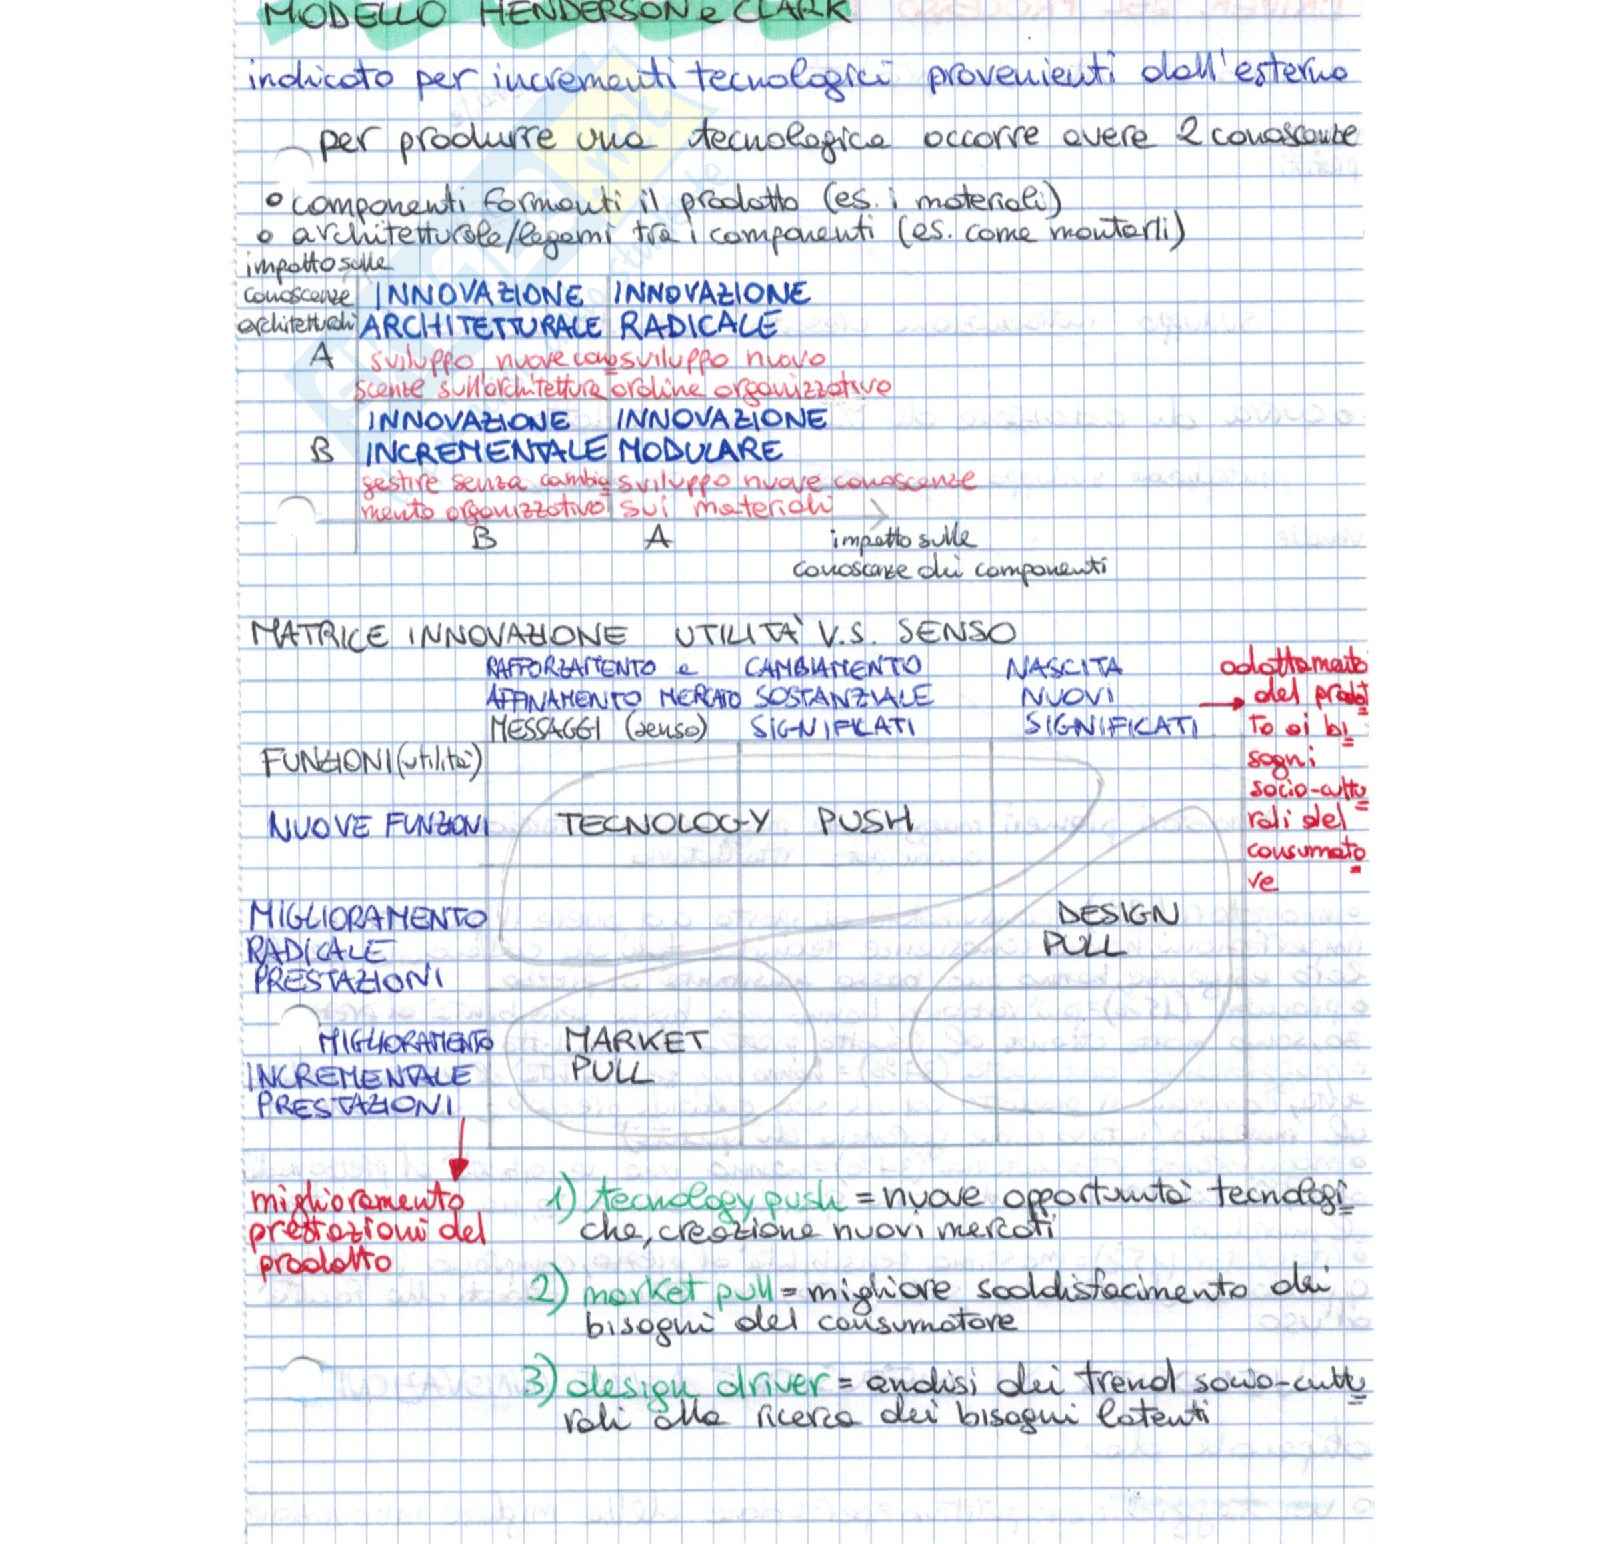 MODELLO HENDERSON e CLARK
indicato per incrementi tecnologici provenienti dall'esterno
per produrre una tecnologica occorre avere 2 conoscenze
componenti formanti il prodotto (es. i materiali)
architetturale/legami tra i componenti (es. come montarli)
impatto sulle
conoscenze INNOVAZIONE INNOVAZIONE
architetturali ARCHITETTURALE RADICALE
A sviluppo nuove cono sviluppo nuovo
scenze sull'architettura ordine organizzativo
INNOVAZIONE INNOVAZIONE
B INCREMENTALE MODULARE
gestire senza cambia sviluppo nuove conoscenze
mento organizzativo sui materiali
B A impatto sulle
conoscenze dei componenti
MATRICE INNOVAZIONE UTILITA' V.S. SENSO
RAFFORZAMENTO e CAMBIAMENTO NASCITA adattamento
AFFINAMENTO MERCATO SOSTANZIALE NUOVI → del prodot
MESSAGGI (senso) SIGNIFICATI SIGNIFICATI to ai bi
FUNZIONI (utilità) sogni
socio-cultu
NUOVE FUNZIONI TECNOLOGY PUSH rali del
consumato
re
MIGLIORAMENTO DESIGN
RADICALE PULL
PRESTAZIONI
MIGLIORAMENTO MARKET
INCREMENTALE PULL
PRESTAZIONI
miglioramento 1) tecnology push = nuove opportunità tecnologi
prestazioni del che, creazione nuovi mercati
prodotto
2) market pull = migliore soddisfacimento dei
bisogni del consumatore
3) design driver = analisi dei trend socio-cultu
rali alla ricerca dei bisogni latenti